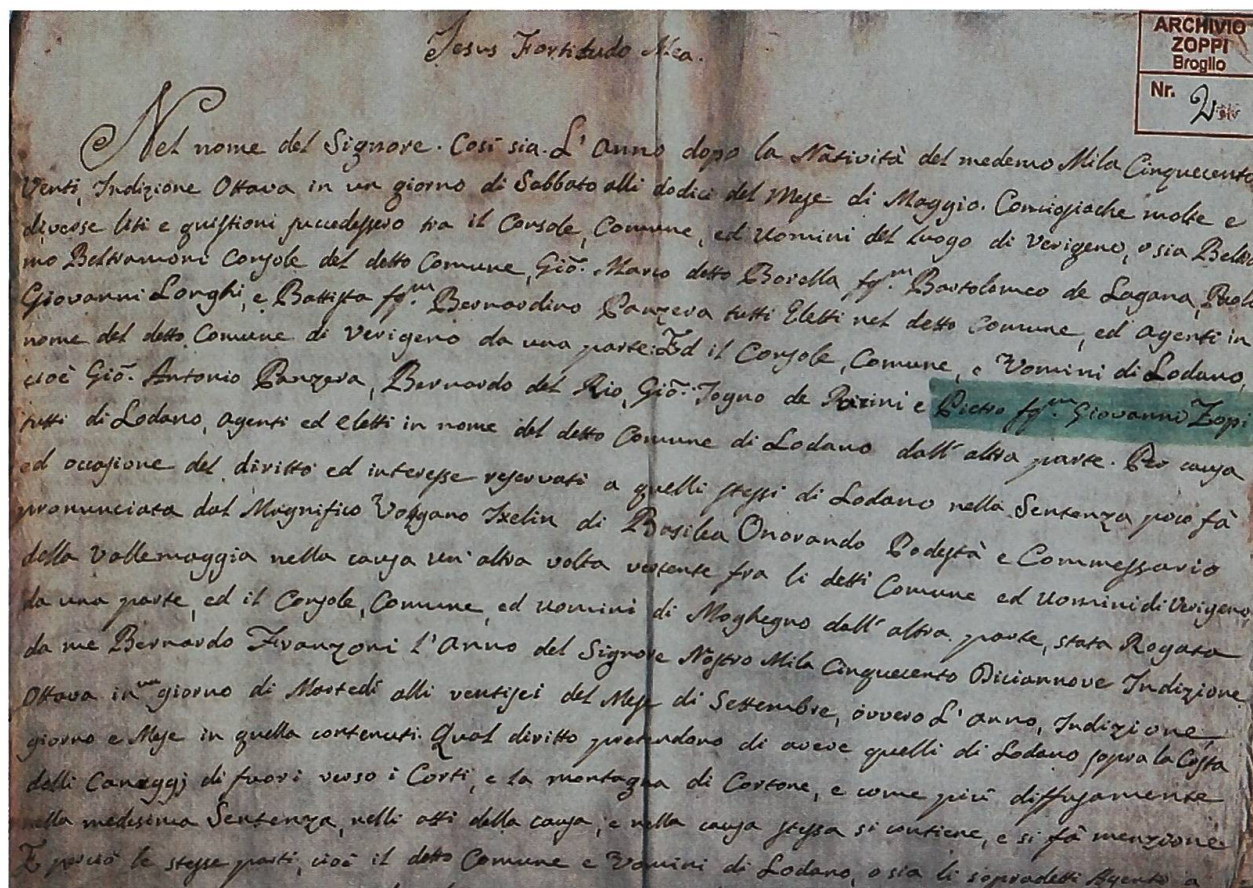 Jesus Fortitudo Mea.
ARCHIVIO
ZOPPI
Broglio
Nr. 2
Nel nome del Signore. Così sia. L'Anno dopo la Natività del medemo Mila Cinquecento
Venti, Indizione Ottava in un giorno di Sabbato alli dodici del Mese di Maggio. Conciosiache molte e
diverse liti e quistioni succedessero tra il Console, Comune, ed Uomini del luogo di Verigeno, o sia Beltra
mo Beltramoni Console del detto Comune, Gio. Marco detto Borella fq.m Bartolomeo de Lagana,
Giovanni Longhi, e Battista fq.m Bernardino Panzera tutti Eletti nel detto Comune, ed agenti in
nome del detto Comune di Verigeno da una parte: Ed il Console, Comune, e Uomini di Lodano,
cioè Gio. Antonio Panzera, Bernardo del Rio, Gio. Togno de e Pietro fq.m Giovanni Zopi
tutti di Lodano, agenti ed eletti in nome del detto Comune di Lodano dall'altra parte. Per causa
ed occasione del diritto ed interesse reservati a quelli stessi di Lodano nella Sentenza poco fà
pronunciata dal Magnifico Volgano Ixelin di Basilea Onorando Podestà e Commessario
della Vallemaggia nella causa un'altra volta vertente fra li detti Comune ed Uomini di Verigeno
da una parte, ed il Console, Comune, ed Uomini di Moghegno dall'altra parte, stata Rogata
da me Bernardo Franzoni l'Anno del Signore Nostro Mila Cinquecento Diciannove Indizione
Ottava in un giorno di Martedì alli ventisei del Mese di Settembre, ovvero L'anno, Indizione,
giorno e Mese in quella contenuti. Qual diritto pretendano di avere quelli di Lodano sopra la Costa
delli Caneggj di fuori verso i Corti, e la montagna di Cortone, e come più diffusamente
nella medesima Sentenza, nelli atti della causa, e nella causa stessa si contiene, e si fà menzione
E perciò le stesse parti, cioè il detto Comune e Uomini di Lodano, o sia li sopradetti Agenti a